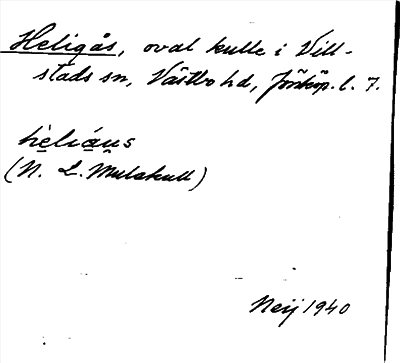 Heligås, oval kulle i Vill-
stads sn, Västbo hd, Jönköp. l. 7.
hèliáus
(N. L. Mulakull)
Neij 1940